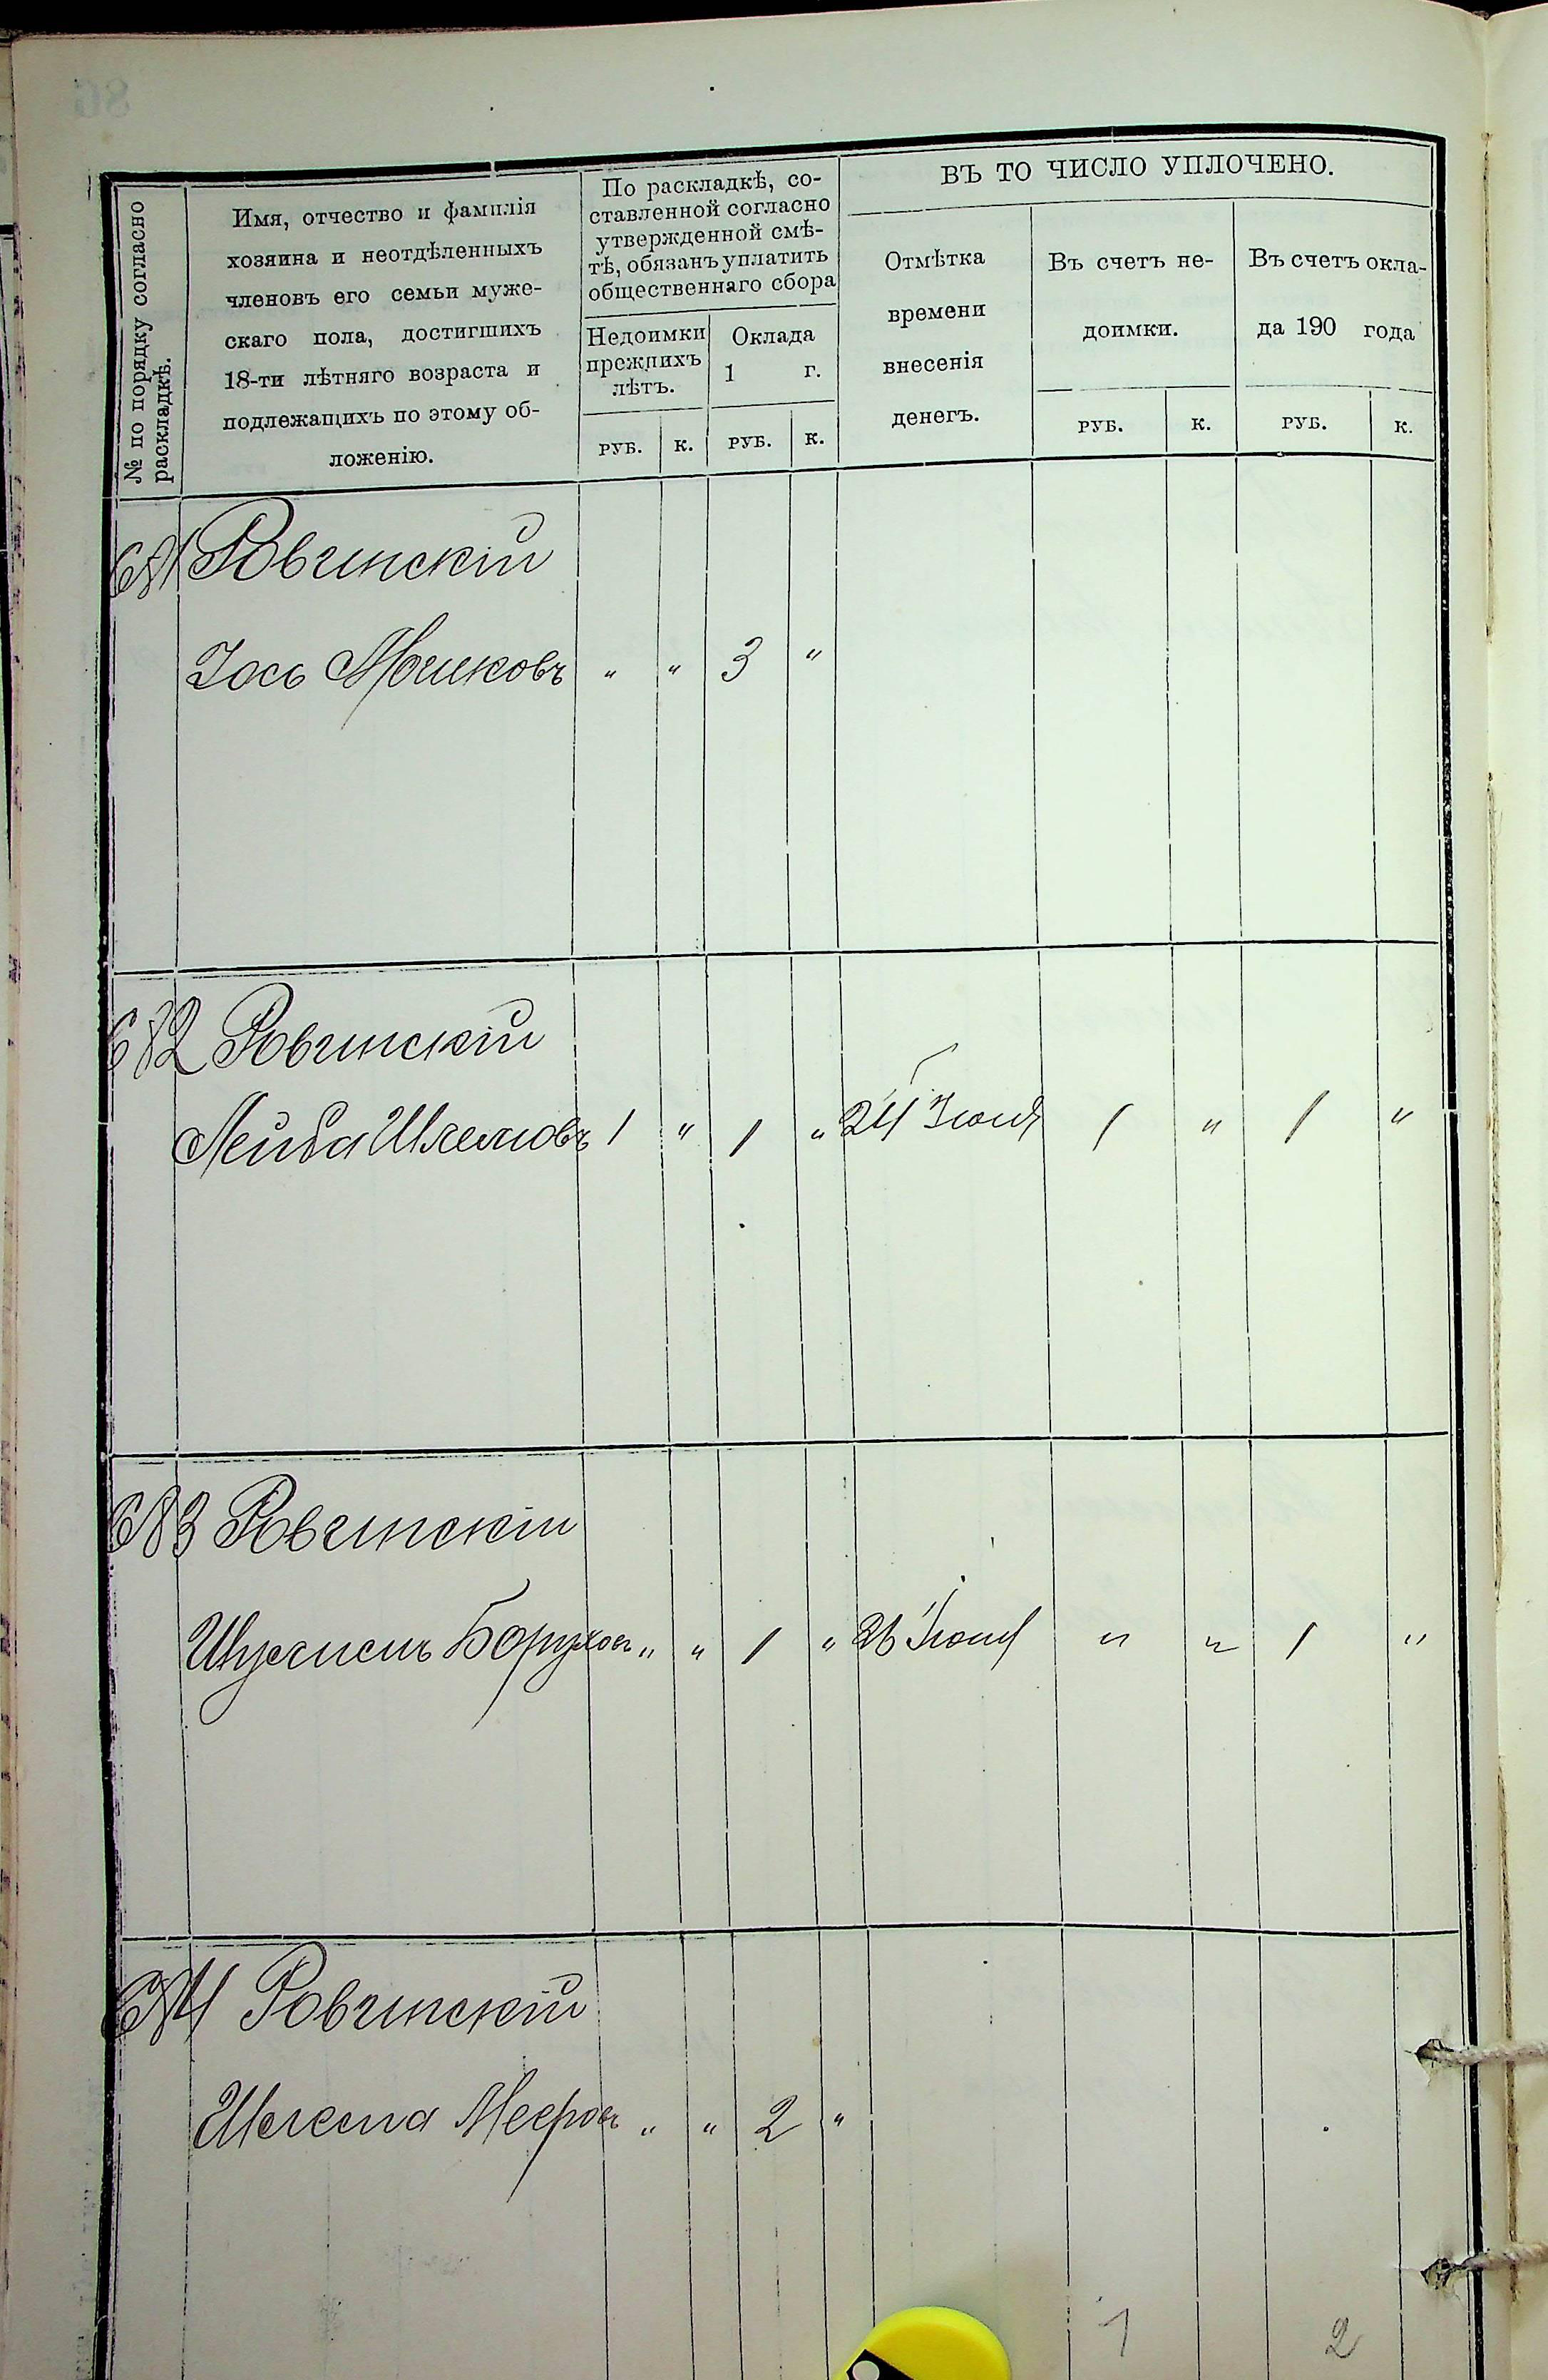 № по порядку согласно раскладкѣ.
Имя, отчество и фамилія
хозяина и неотдѣленныхъ
членовъ его семьи муже-
скаго пола, достигшихъ
18-ти лѣтняго возраста и
подлежащихъ по этому об-
ложенію.
По раскладкѣ, со-
ставленной согласно
утвержденной смѣ-
тѣ, обязанъ уплатить
общественнаго сбора
Недоимки
прежнихъ
лѣтъ.
Оклада
1 г.
РУБ. К. РУБ. К.
ВЪ ТО ЧИСЛО УПЛОЧЕНО.
Отмѣтка
времени
внесенія
денегъ.
Въ счетъ не-
доимки.
РУБ. К.
Въ счетъ окла-
да 190 года
РУБ. К.
681 Ровинскій
Іось Мошковъ " " 3 "
682 Ровинскій
Лейба Шлемовъ 1 " 1 " 24 Іюня 1 " 1 "
683 Ровинскій
Боруховъ " " 1 " 26 Іюня " " 1 "
684 Ровинскій
Мееровъ " " 2 "
1 2